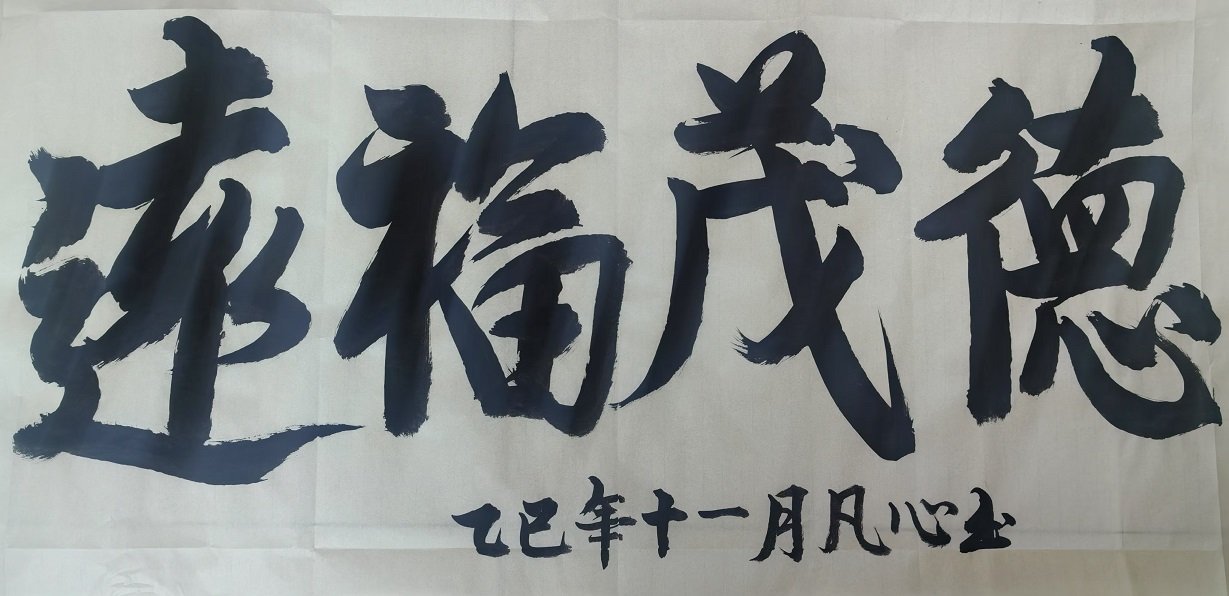 德茂福遠
乙巳年十一月凡心书